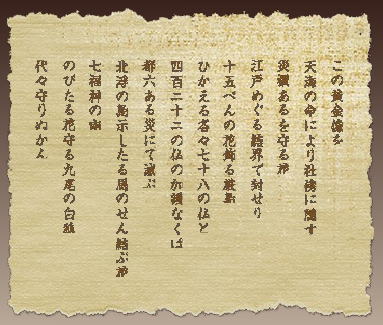 この黄金像を
天海の命により社傍に隠す
災禍あるを守る
江戸めぐる結界で封せり
十五べんの花飾る
ひかえる各々七十八の仏と
四百二十二の仏の加護なくば
都六ある災にて滅ぶ
北浮の馬示したる馬のせん結ぶ
七福神の
のびたる花守る九尾の白狐
代々守りぬかん